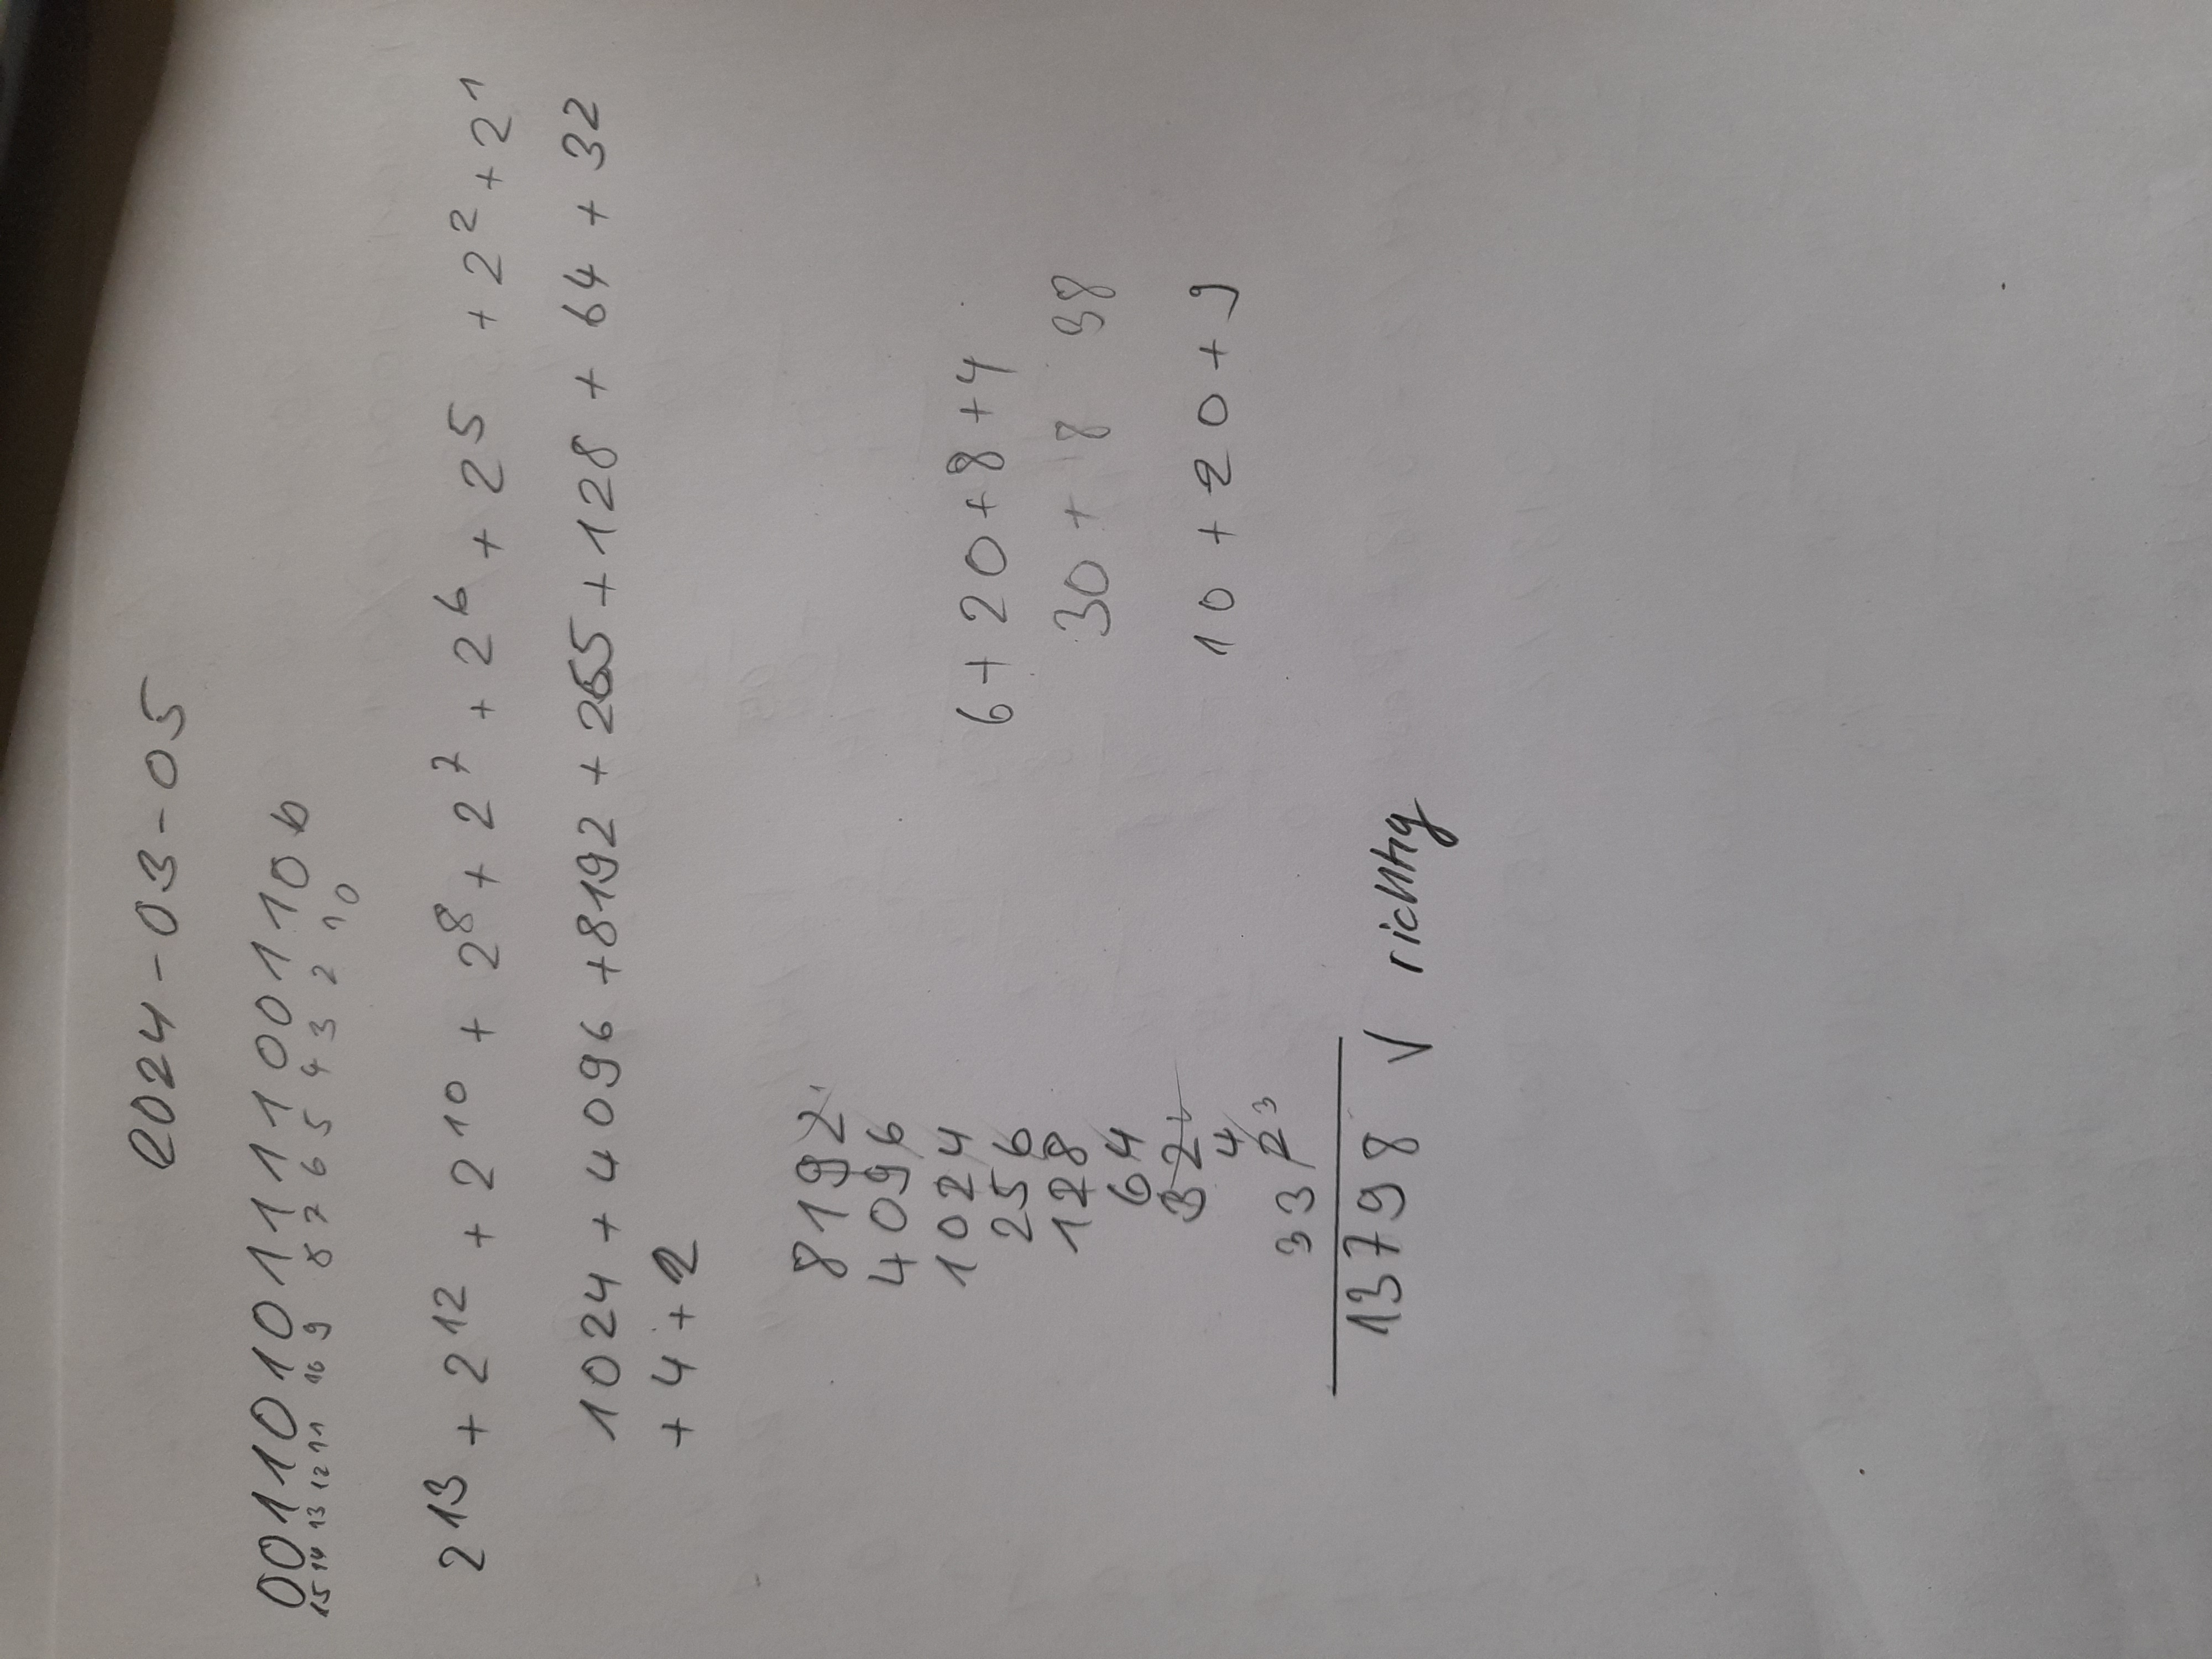 2024-03-05
0011010111100110b
15 14 13 12 11 10 9 8 7 6 5 4 3 2 1 0
2^13 + 2^12 + 2^10 + 2^8 + 2^7 + 2^6 + 2^5 + 2^2 + 2^1
1024 + 4096 + 8192 + 265 + 128 + 64 + 32
+ 4 + 2
8192
4096
1024
256
128
64
32
4
2
3 3 3
13798 √ richtig
6 + 20 + 8 + 4
30 + 8 38
10 + 20 + 9